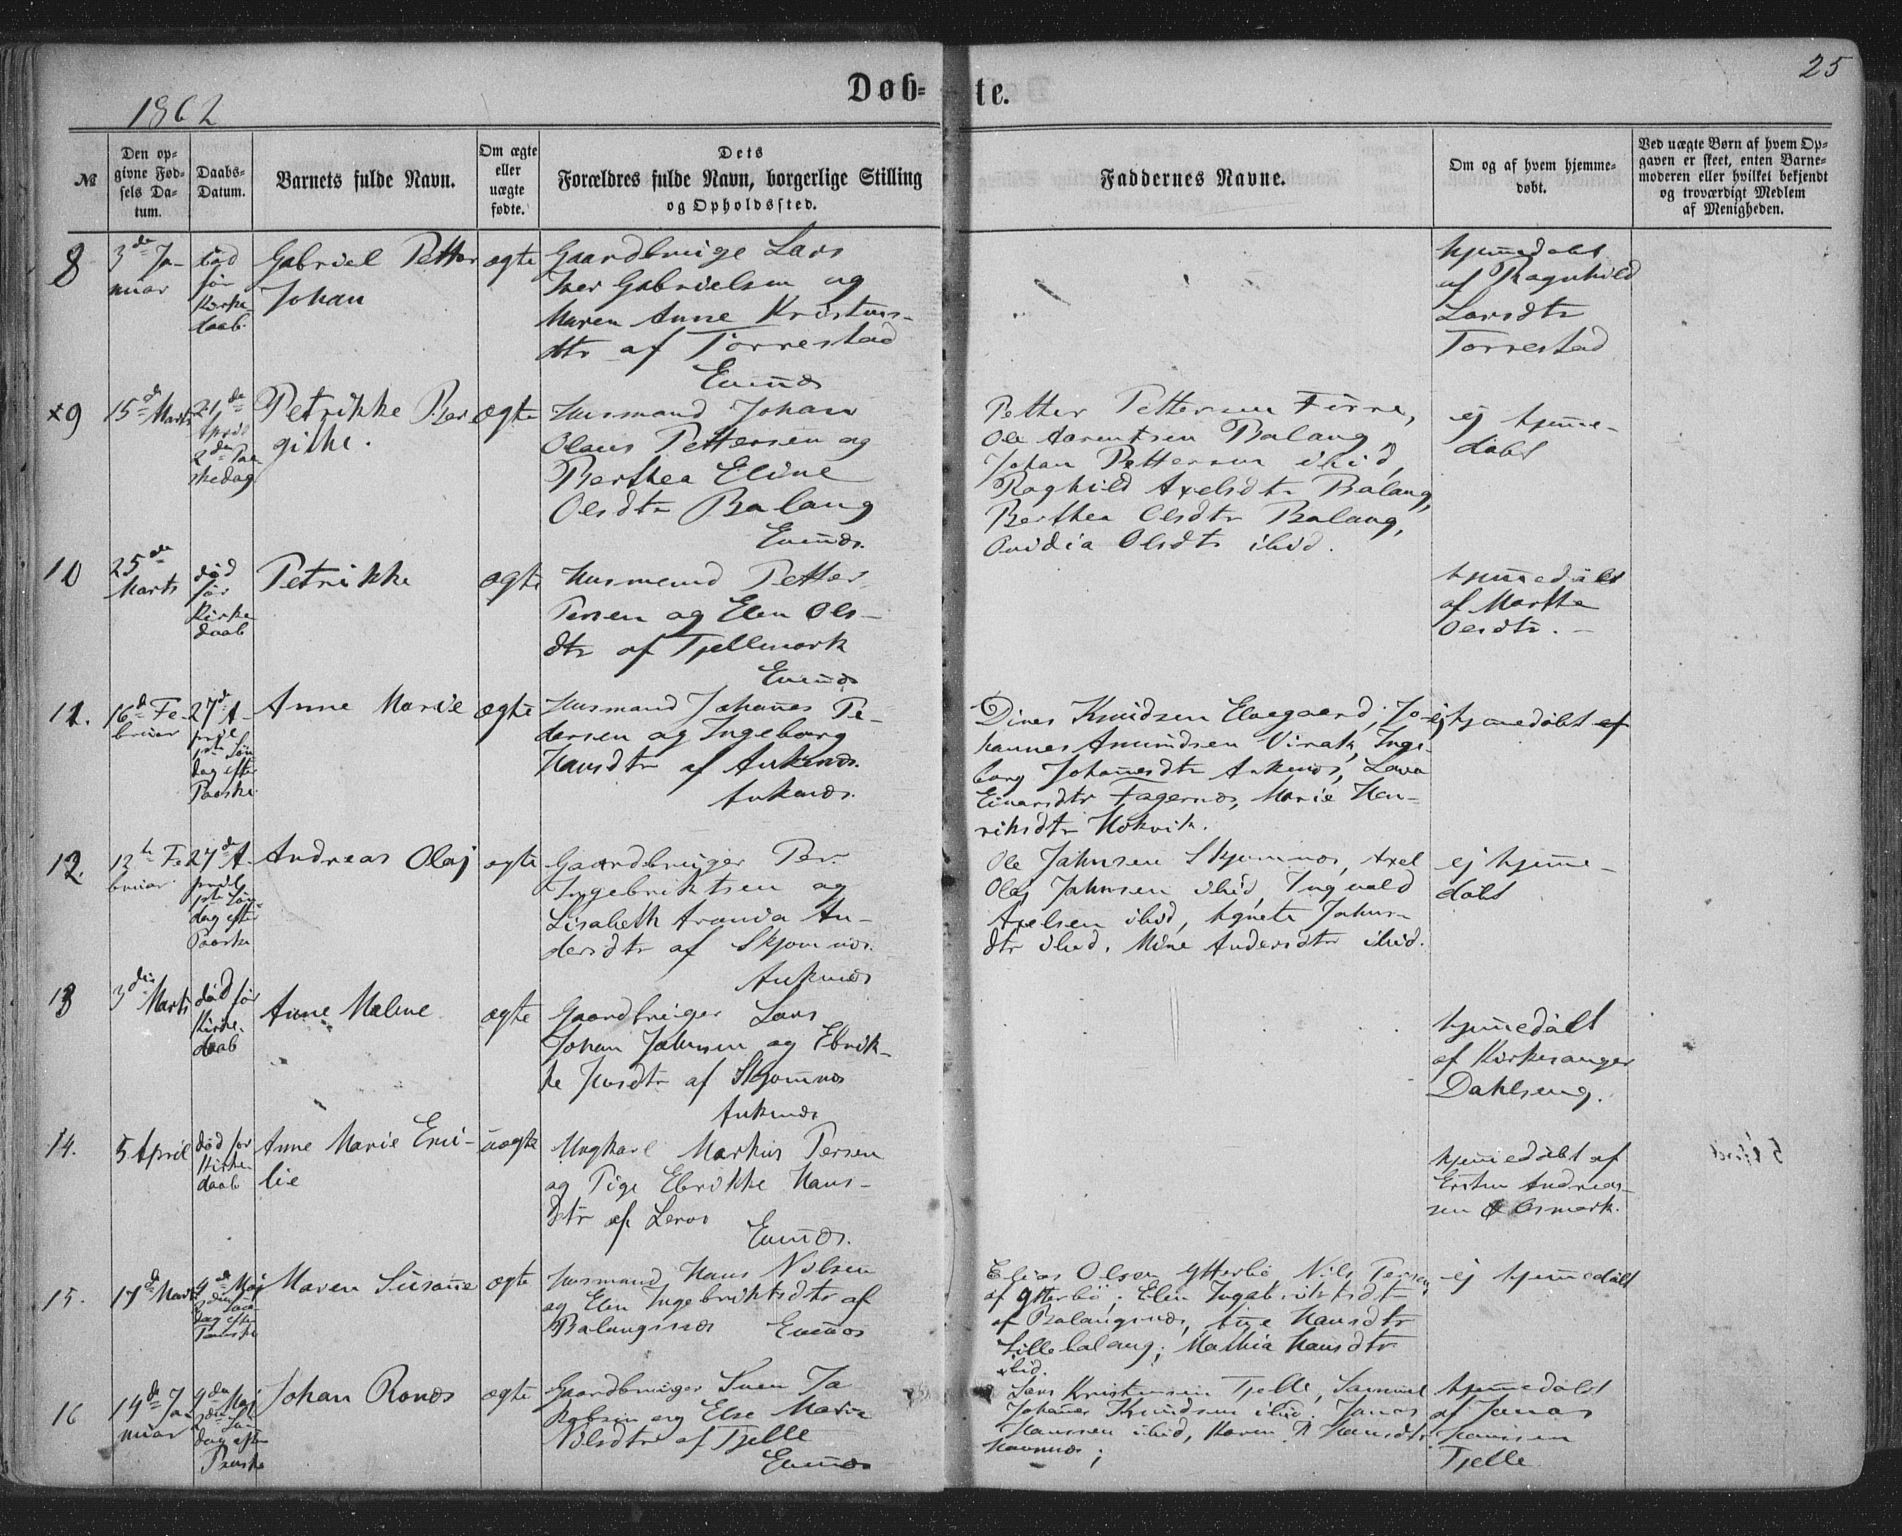 25
1862
Døb-
te.
№
Den op-
givne Fød-
sels Da-
tum.
Daabs-
Datum.
Barnets fulde Navn.
Om ægte
eller
uægte
fødte.
Dets
Forældres fulde Navn, borgerlige Stilling
og Opholdssted.
Faddernes Navne.
Om og af hvem hjemme-
døbt.
Ved uægte Børn af hvem Op-
gaven er skeet, enten Barne-
moderen eller hvilket bekjendt
og troværdigt Medlem
af Menigheden.
8
3de Ja-
nuar
død
før
Kirke
daab
Gabriel Petter
Johan
ægte
Gaardbruger Lars
Iver Gabrielsen og
Maren Anne Kristens-
dtr af Torrestad
Evenæs
hjemedøbt
af Ragnhild
Larsdtr
Torrestad
x9
15de Marts
21de
April
2den Paa
skedag
Petrikke Ber
githe.
ægte
Husmand Johan
Olaus Pettersen og
Berthea Eline
Olsdtr Balang
Evenæs.
Petter Pettersen
Ole Aarentsen Balang,
Johan Pettersen ibid,
Raghild Axelsdtr Balang,
Berthea Olsdtr Balang,
Ovidia Olsdtr ibid.
ej hjemme-
døbt
10
25de
Marts
død
før
Kirke
daab
Petrikke
ægte
Husmand Petter
Persen og Elen Ols-
dtr af Tjellmark
Evenæs
hjemedøbt
af Marthe
Olsdtr. -
11.
16de Fe-
bruar
27de A-
pril
1ste Søn
dag efter
Paaske
Anne Marie
ægte
Husmand Johanes Pe-
dersen og Ingeborg
Hansdtr af Ankenæs.
Ankenæs.
Dines Knudsen Elvegaard, Jo-
hannes Amundsen Virak, Inge-
borg Johanesdtr Ankenæs, Lava
Einarsdtr Fagernæs, Marie Hen-
riksdtr Hokvik.
ej hjemedøbt af
12.
12te Fe
bruar
27de A-
pril
1ste Søn
dag efter
Paaske
Andreas Olaj
ægte
Gaardbruger Per
Ingebriktsen og
Lisabeth Arania An-
dersdtr af Skjomnæs.
Ankenæs
Ole Jahnsen Skjomnæs, Axel
Olaj Jahnsen ibid, Ingvald
Axelsen ibid, Agnete Jahns-
dtr ibid. Mine Andersdtr ibid.
ej hjemme-
døbt
13
3die
Marts
død før
Kirke-
daab
Anne Malene
ægte
Gaardbruger Lars
Johan Jahnsen og Ebrik-
ke dtr af Skjomnæs
Ankenæs
hjemedøbt
af Kirkesanger
Dahlseng.
14.
5 April
død før
Kirke
daab
Anne Marie Emi-
lie
uægte
Ungkarl Markus Persen
og Pige Ebrikke Hans-
dtr af Lenæs
Evenæs.
hjemedøbt af
Ersten Andreas-
sen Osmark.
15.
17de Marts
4de Maj
2den Søn
dag efter
Paaske
Maren Susanne
ægte
Husmand Hans Nilsen
og Elen Ingebriktsdtr af
Balangsnæs Evenæs
Elias Olsen Ytterbø, Nils Persen
af Ytterbø, Elen Ingebriktsdtr
af Balangsnæs, Ane Hansdtr
Lillebalang; Mathia Hansdtr
ibid.
ej hjemmedøbt
16
14de Ja-
nuar
4de Maj
2den Søn
dag efter
Paaske
Johan Ronæs
ægte
Gaardbruger Sven Ja
kobsen og Else Maria
Nilsdtr af Tjelle
Evenæs
Lars Kristensen Tjelle, Samuel
Johannes Knudsen ibid. Jonas
Hanssen ibid, Karen P. Hansdtr
;
hjemedøbt
af Jonas
Hanssen
Tjelle